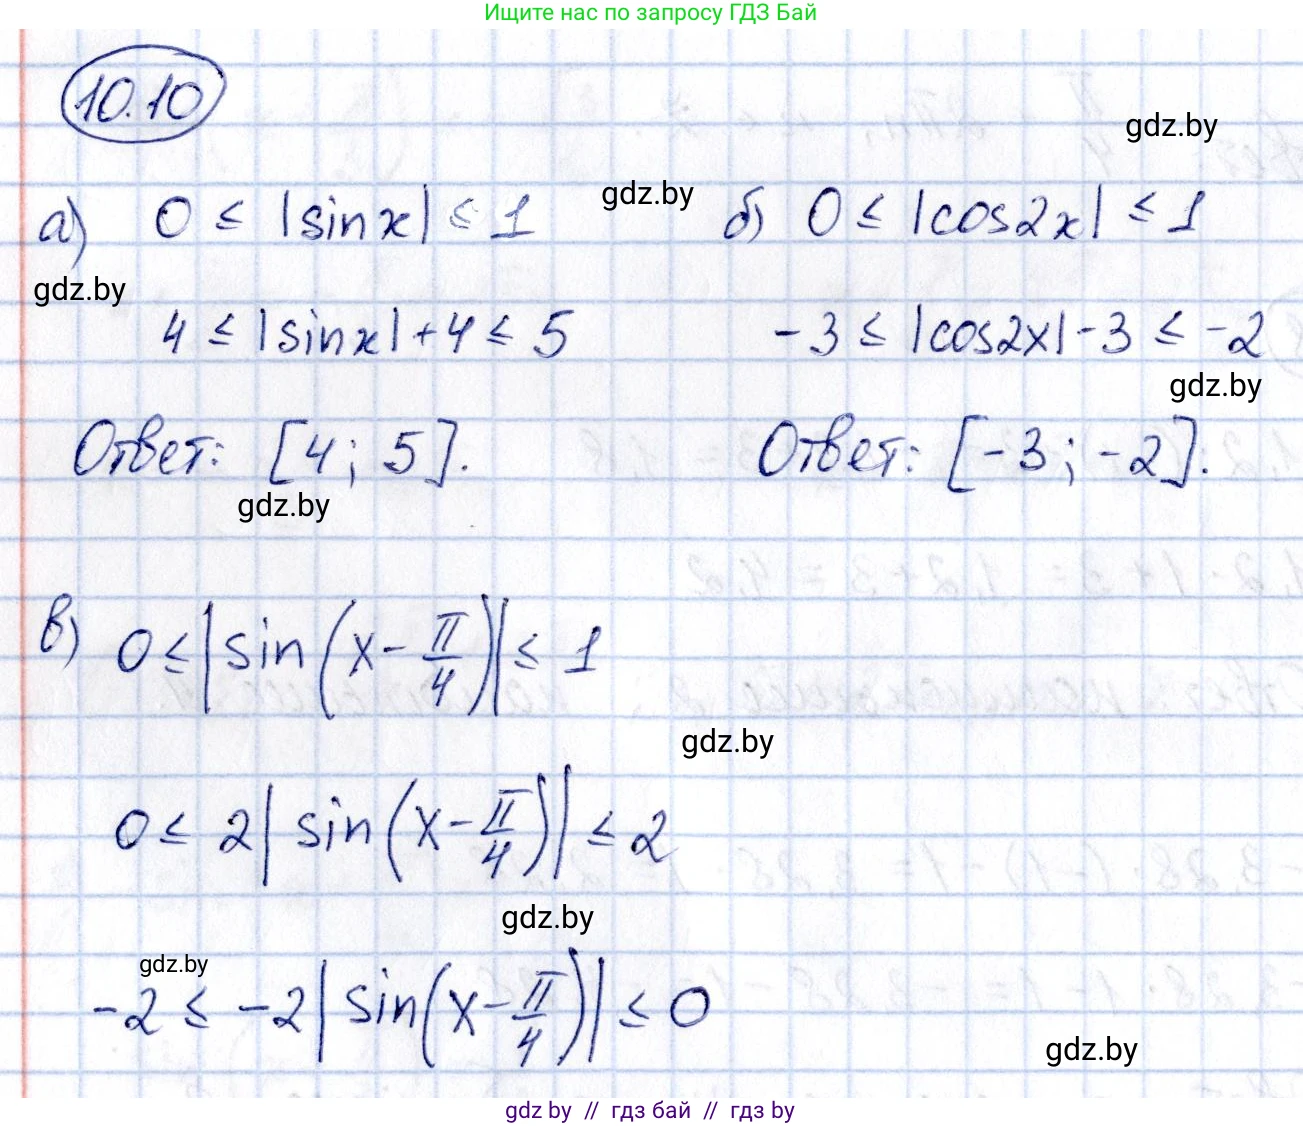 Ищите нас по запросу ГДЗ Бай
10.10
gdz.by
а) 0 ≤ |sin x| ≤ 1
gdz.by
б) 0 ≤ |cos2x| ≤ 1
gdz.by
4 ≤ |sin x| + 4 ≤ 5
-3 ≤ |cos2x| - 3 ≤ -2
gdz.by
Ответ: [4; 5].
Ответ: [-3; -2].
gdz.by
в) 0 ≤ |sin(x - π/4)| ≤ 1
gdz.by
0 ≤ 2|sin(x - π/4)| ≤ 2
gdz.by
gdz.by
-2 ≤ -2|sin(x - π/4)| ≤ 0
gdz.by
gdz by // гдз бай // гдз by